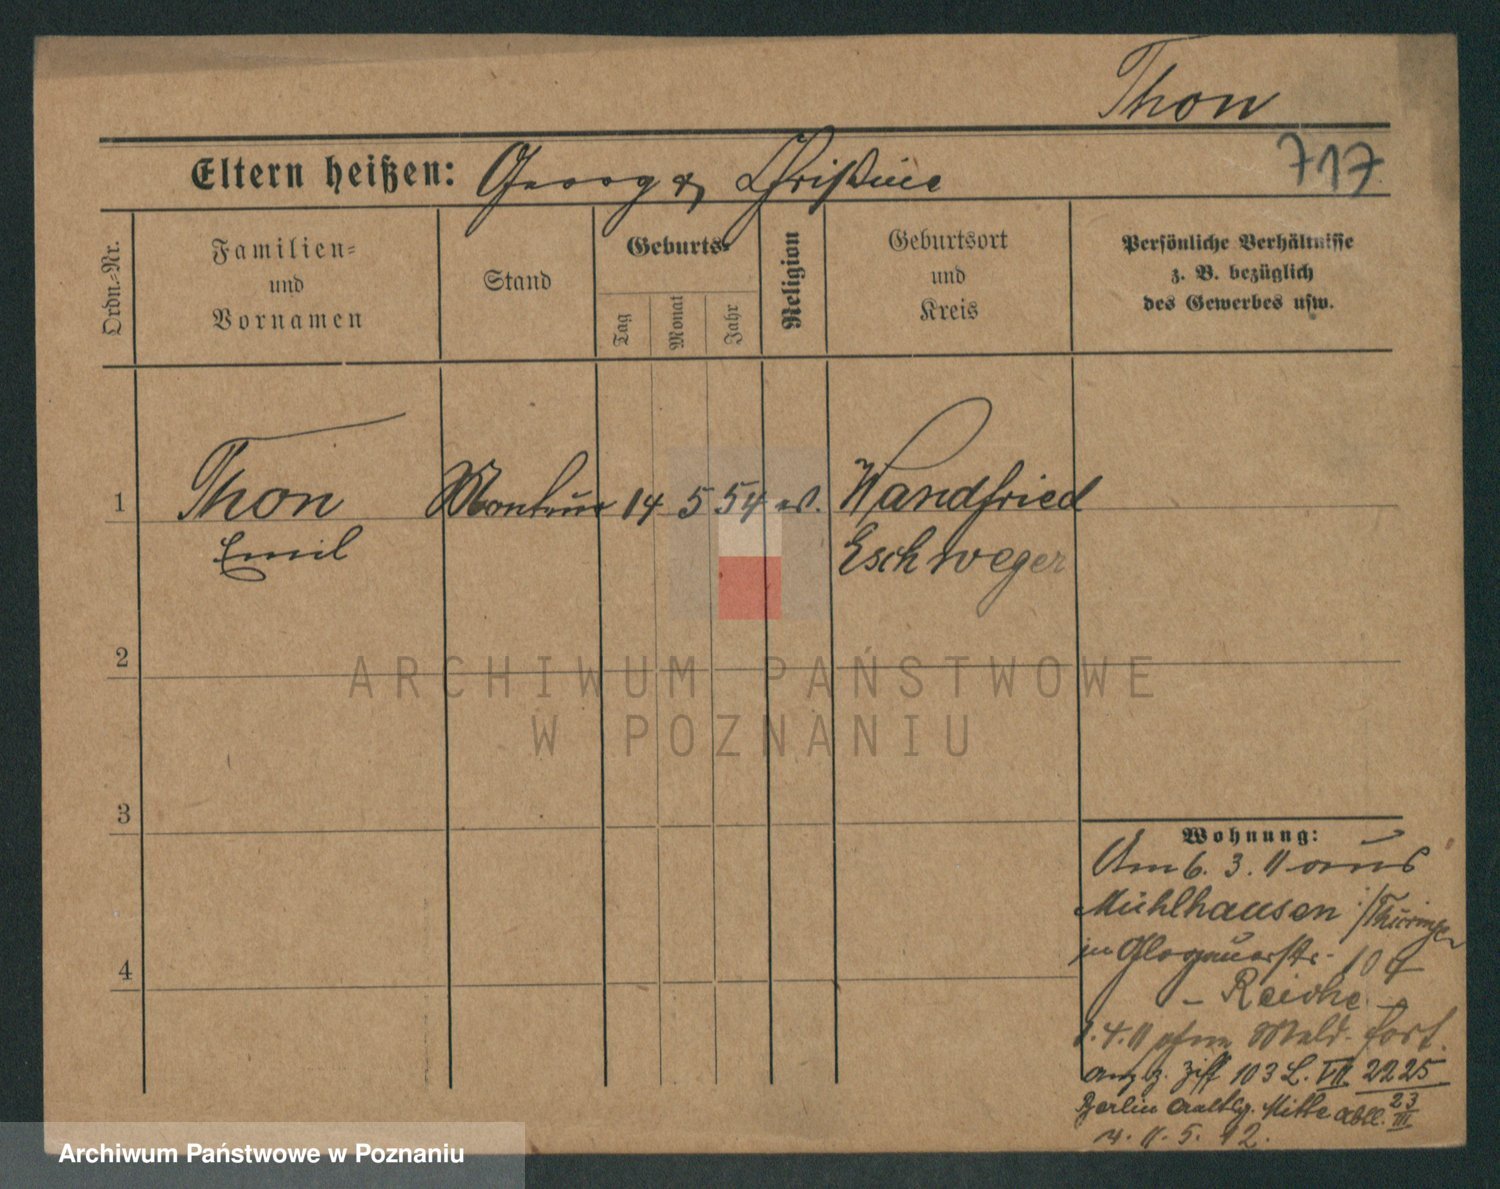 Thon
717
Eltern heißen: Georg & Christine
Ordn.-Nr.
Familien-
und
Vornamen
Stand
Geburts-
Tag
Monat
Jahr
Religion
Geburtsort
und
Kreis
Persönliche Verhältnisse
z. B. bezüglich
des Gewerbes usw.
1 Thon Monteur 14 5 54 ev. Wandfried
Emil Eschweger
2
3
4
Wohnung:
Am 6. 3. 11 aus
Mühlhausen /Thüringen
in Glogauerstr. 109
- Reiche -
1. 4. 11 ohne Meld. fort.
Ziff 103 L. VII 2225
Berlin Mitte Abtl. 23 III
v. 11. 5. 12.
ARCHIWUM PAŃSTWOWE
W POZNANIU
Archiwum Państwowe w Poznaniu